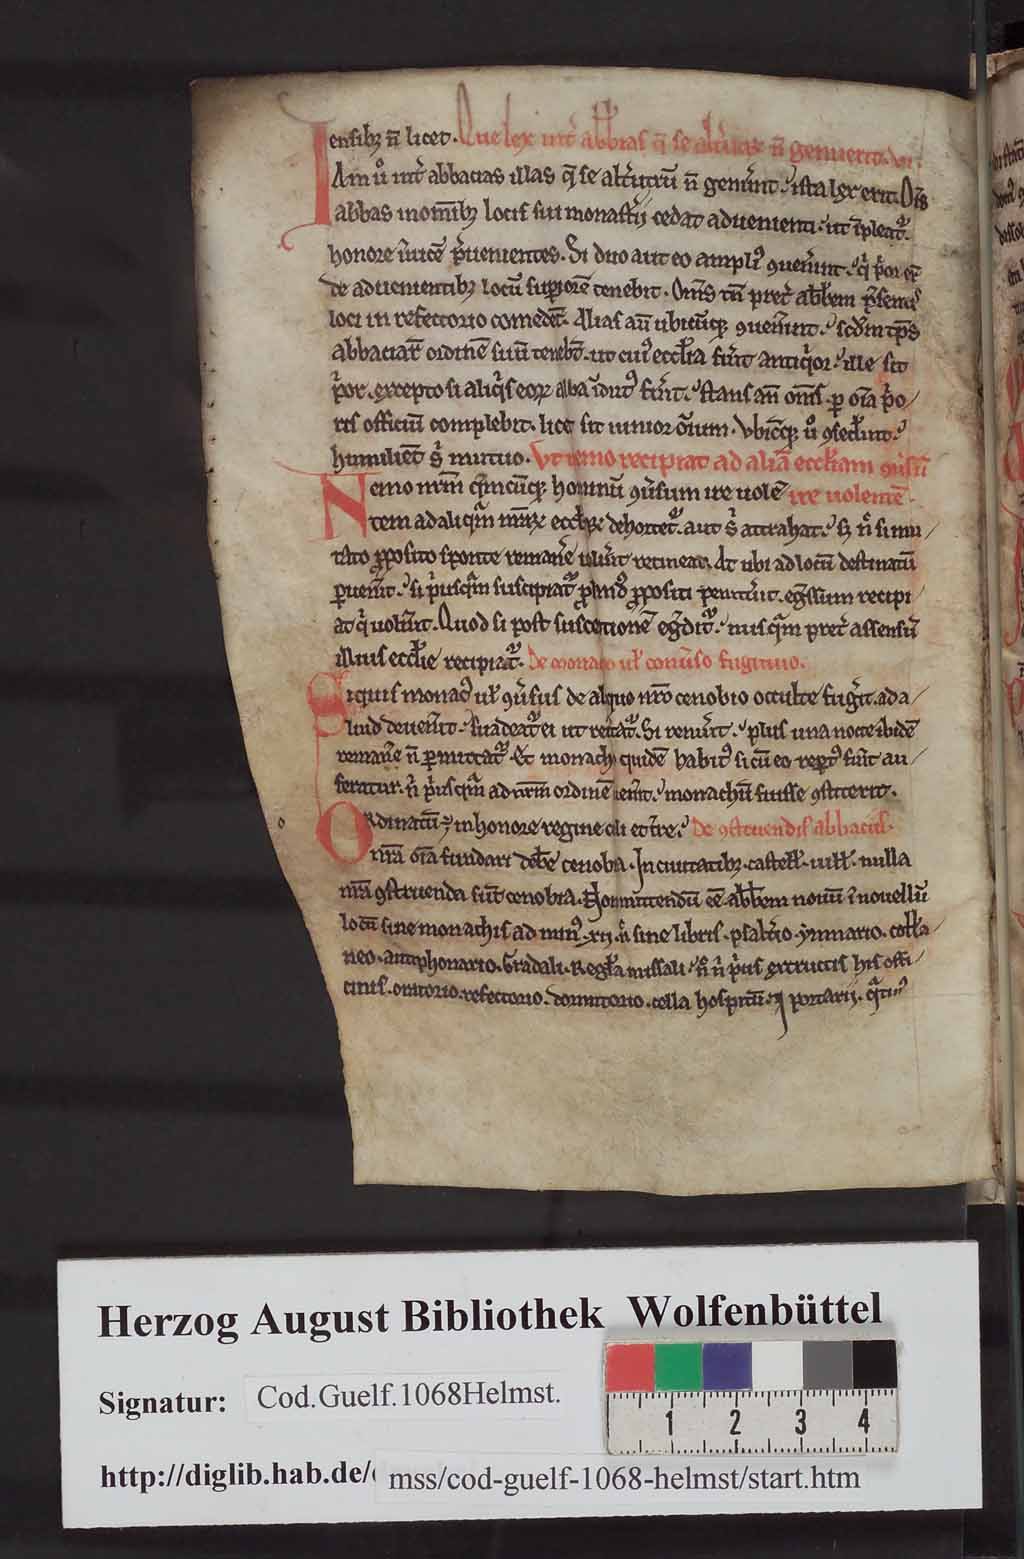 ensibꝫ n̄ licet. Que lex int̾ abb̄ias q̄ se alt̾utras n̄ genuerit. vi.
IAm u̾ int̾ abbacias illas q̄ se alt̾utrū n̄ genuer̄t. ista lex erit. Om̄s
abbas in om̄ibꝫ locis sui monast̾ij cedat aduenienti. ut īpleat᷑.
honore īuicē p̄uenientes. Si duo aut eo ampli⁹ ꝯuen̾int. q̾ p̾or ē
de aduenientibꝫ locū sup̾iorē tenebit. Om̄s tn̄ pret̾ abb̄em p̄sentis
loci in refectorio comedēt. Alias aū ubicūqꝫ ꝯuen̾int. scd̄m tp̄s
abbaciarꝫ ordinē suū tenebt̄. ut cui⁹ ecclīa fu̾it antiq̾or. ille sit
p̾or. excepto si aliq̾s eoꝝ alba īdut⁹ fu̾it. Stans aū om̄s. ꝑ oīa p̾o/
ris officiū complebit. licet sit iunior om̄ium. Vbicūqꝫ u̾ ꝯsed̾int.
humiliēt s̾ mutuo. Vt nemo recipiat ad aliā eccl̄iam ꝯu̾sū
Nemo nr̄m q̄mcūqꝫ hominū ꝯu̾sum ire uolē ire uolentē.
tem ad aliq̄m nr̄aꝝ eccl̄iaꝝ dehortet᷑. aut s̾ attrahat. sꝫ n̾ si mu/
tato ꝓposito sponte remanē uolu̾it retineat. At ubi ad locū destinatū
ꝑuen̾it. si p̾usq̄m suscipiat᷑ ꝓposti penitu̾it. eg̾ssum recipi
at q̾ uolu̾it. Quod si post susceptionē eg̾dit᷑. nusq̄m pret̾ assensū
illius eccl̄ie recipiat᷑. De monaco ul̾ conu̾so fugitiuo.
Siquis monac⁹ ul̾ ꝯu̾sus de aliquo nr̄o cenobio occulte fug̾it. ad a/
liud deuen̾it. suadeat᷑ ei ut redeat᷑. Si renu̾it. plus una nocte ibidē
remanē n̄ ꝑmittat᷑. Et monachi quidē habit⁹ si cū eo rep̾t⁹ fu̾it au/
feratur. n̾ p̾usq̄m ad nr̄m ordinē uen̾it. monachū fuisse ꝯstiterit.
ORdinatū ē in honore regine celi et t̾re. De ꝯstruendis abbaciis.
nr̄a oīa fundari debē cenobia. In ciuitatibꝫ. castell̾. uill̾. nulla
nr̄a ꝯstruenda sūt cenobia. Non mittendū eē abb̄em nouū ī nouellū
locū sine monachis ad min⁹ xij. n̾ sine libris. psalt̾io. ymnario. coll̄a/
neo. antiphonario. Gradali. Regl̄a. missali. n̾ n̾ p̾us extructis his offi/
cinis. oratorio. refectorio. dormitorio. cella hospitū. ⁊ portarij. q̄tin⁹
Herzog August Bibliothek Wolfenbüttel
Signatur: Cod.Guelf.1068Helmst.
1 2 3 4
http://diglib.hab.de/ mss/cod-guelf-1068-helmst/start.htm